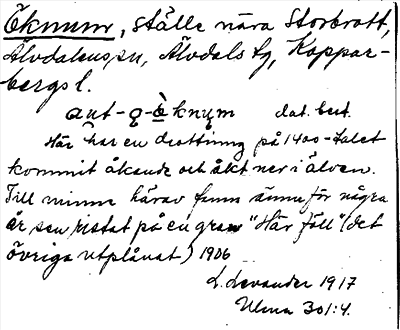 Öknum, ställe nära Storbrott,
Älvdalens sn, Älvdals tg, Koppar-
bergs l.
aut-ǫ-ȍknųm dat. best.
Här har en drottning på 1400-talet
kommit åkande och åkt ner i älven.
Till minne härav fanns ännu för några
år sen ristat på en gran "Här föll" (det
övriga utplånat) 1906
L. Levander 1917
Ulma 301:4.